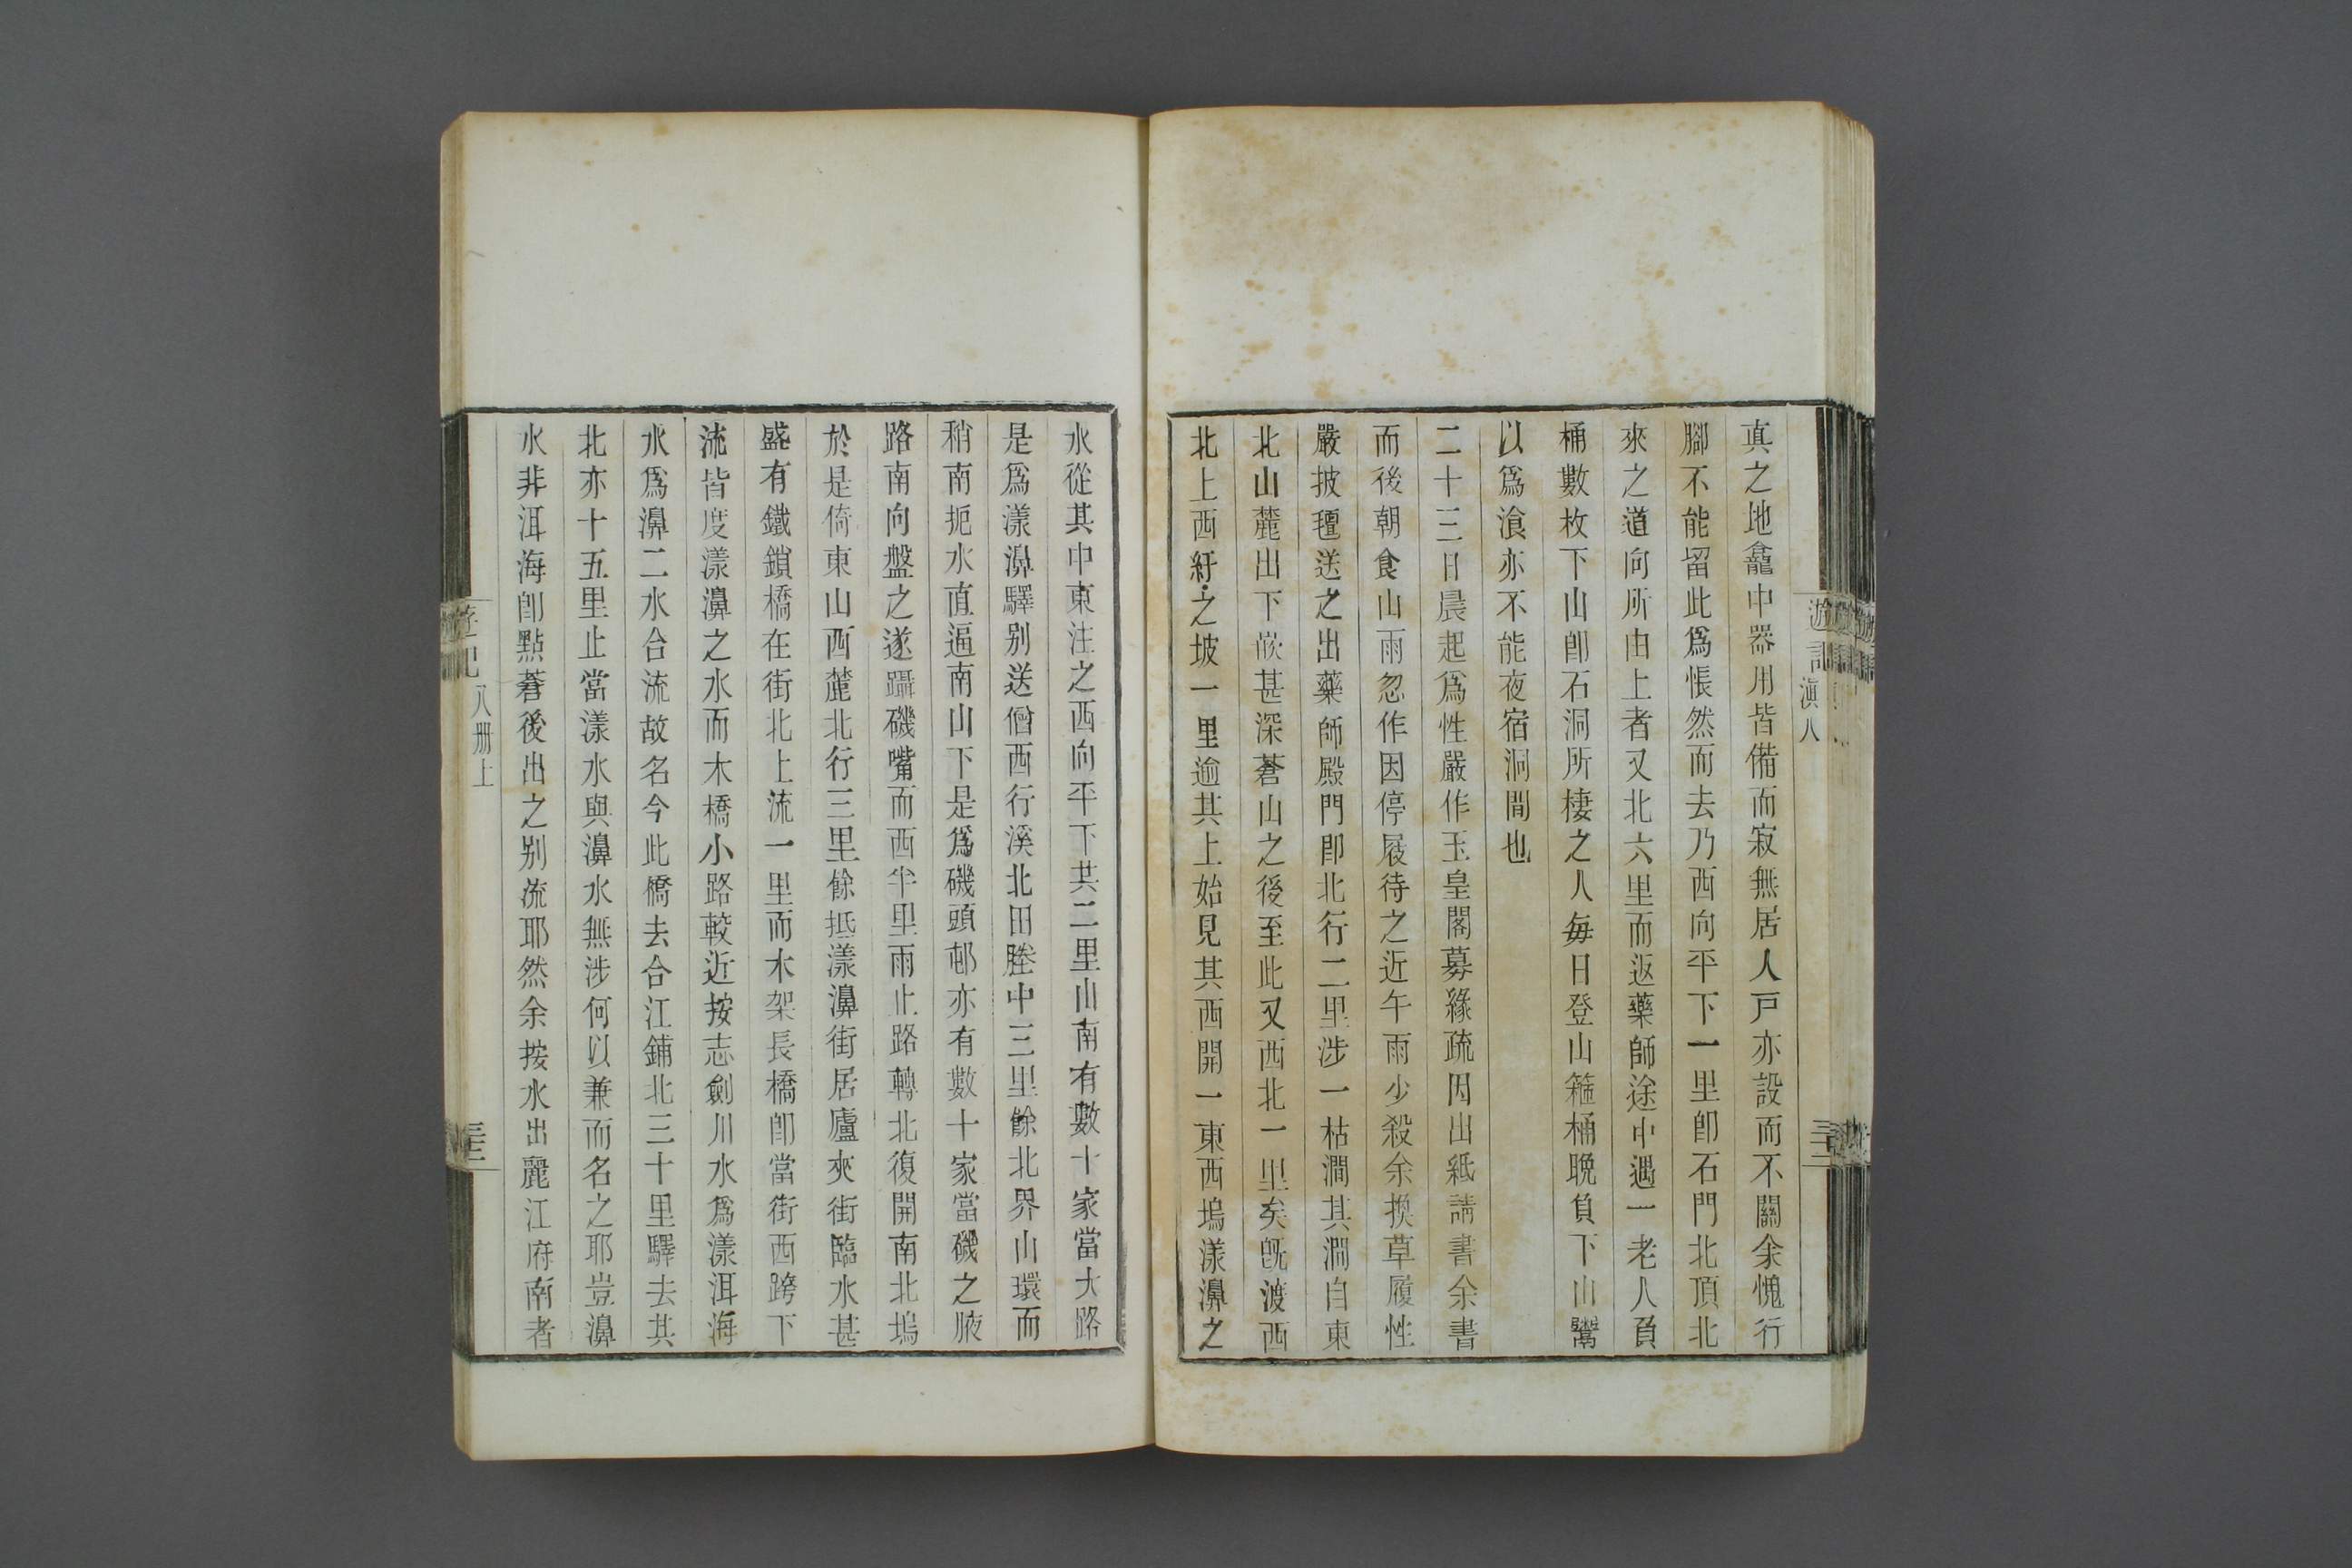 遊記
滇八
真之地龕中器用皆備而寂無居人戸亦設而不關余愧行
腳不能留此爲悵然而去乃西向平下一里卽石門北頂北
來之道向所由上者又北六里而返藥師途中遇一老人負
桶數枚下山卽石洞所棲之人每日登山箍桶晚負下山鬻
以爲飡亦不能夜宿洞間也
二十三日晨起爲性嚴作玉皇閣募緣疏因出紙請書余書
而後朝食山雨忽作因停屐待之近午雨少殺余換草履性
嚴披氊送之出藥師殿門卽北行二里涉一枯澗其澗自東
北山麓出下嵌甚深蒼山之後至此又西北一里矣旣渡西
北上西紆之坡一里逾其上始見其西開一東西塢漾濞之
水從其中東注之西向平下共二里山南有數十家當大路
是爲漾濞驛别送僧西行溪北田塍中三里餘北界山環而
稍南扼水直逼南山下是爲磯頭邨亦有數十家當磯之腋
路南向盤之遂躡磯嘴而西半里雨止路轉北復開南北塢
於是倚東山西麓北行三里餘抵漾濞街居廬夾街臨水甚
盛有鐵鎖橋在街北上流一里而木架長橋卽當街西跨下
流皆度漾濞之水而木橋小路較近按志劍川水爲漾洱海
水爲濞二水合流故名今此橋去合江鋪北三十里驛去其
北亦十五里止當漾水與濞水無涉何以兼而名之耶豈濞
水非洱海卽點蒼後出之别流耶然余按水出麗江府南者
遊記
八册上